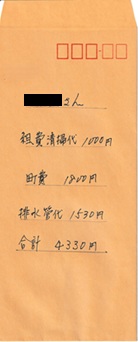 さん
組費清掃代 1000円
町費 1800円
排水管代 1530円
合計 4.330円